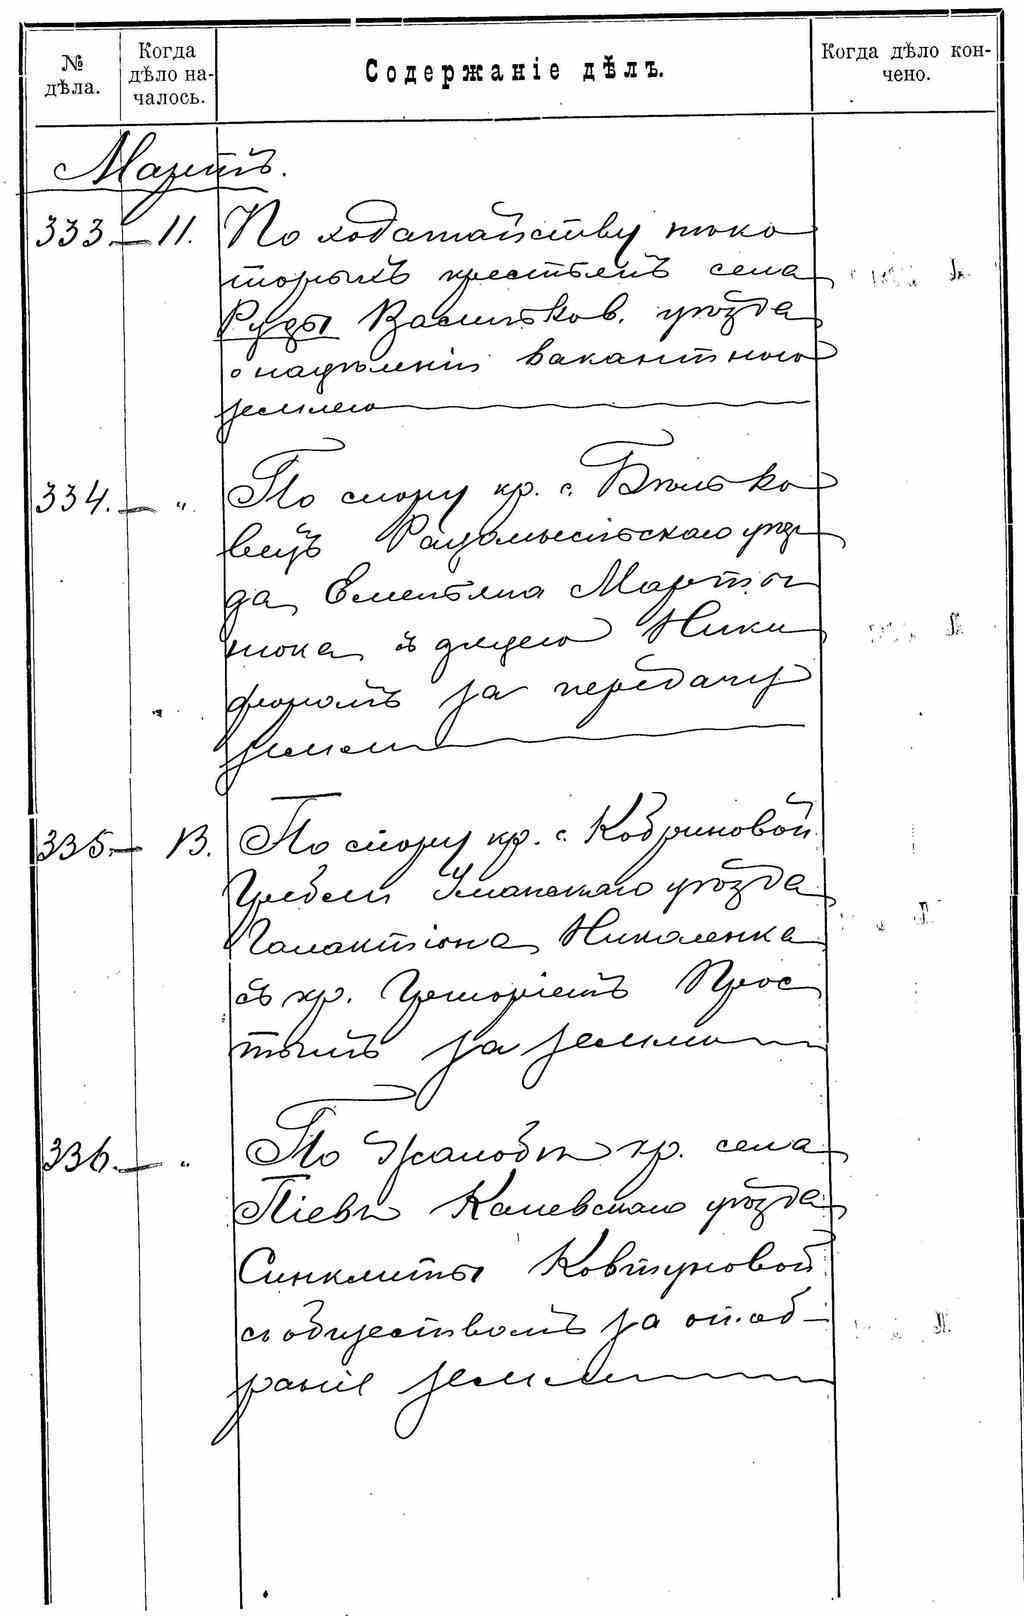 № дѣла.
Когда дѣло на-
чалось.
Содержаніе дѣлъ.
Когда дѣло кон-
чено.
Мартъ.
333. — 11. По ходатайству нѣко
торыхъ крестьянъ села
Руды Васильков. уѣзда
о надѣленіи вакантною
землею
334. — „ По спору кр. с. Бѣлько
вецъ Радомысльскаго уѣз
да Емельяна Марты
нюка съ дядею Ники
форомъ за передачу
земли
335. — 13. По спору кр. с. Кобриновой
Гребли Уманскаго уѣзда
Галактіона Николенка
съ кр. Григоріемъ Прос
тымъ за землю
336. — „ По жалобѣ кр. села
Піевъ Каневскаго уѣзда
Синклиты Ковтуновой
съ обществомъ за отоб-
раніе земли